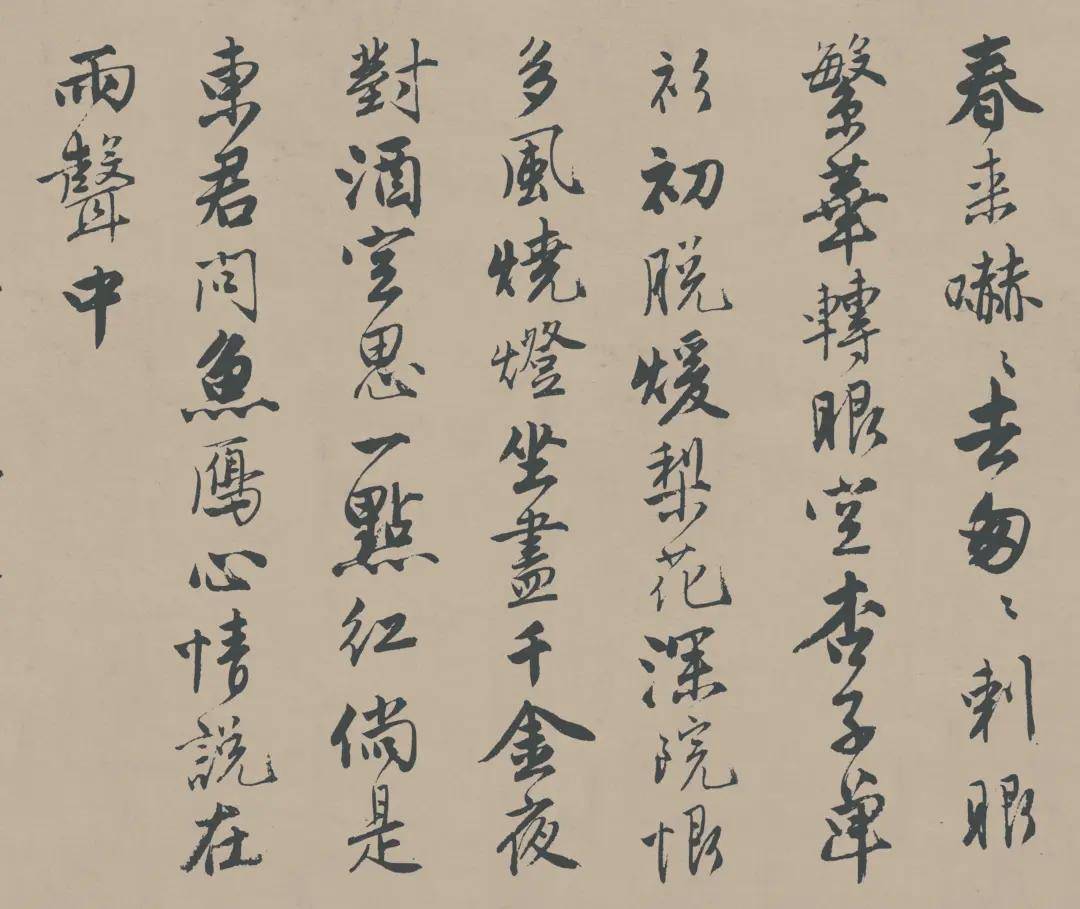 春来嚇〻去匆〻刺眼
繁華轉眼空杏子單
衫初脱煖梨花深院恨
多風燒燈坐盡千金夜
對酒空思一點紅倘是
東君問魚鴈心情說在
雨聲中